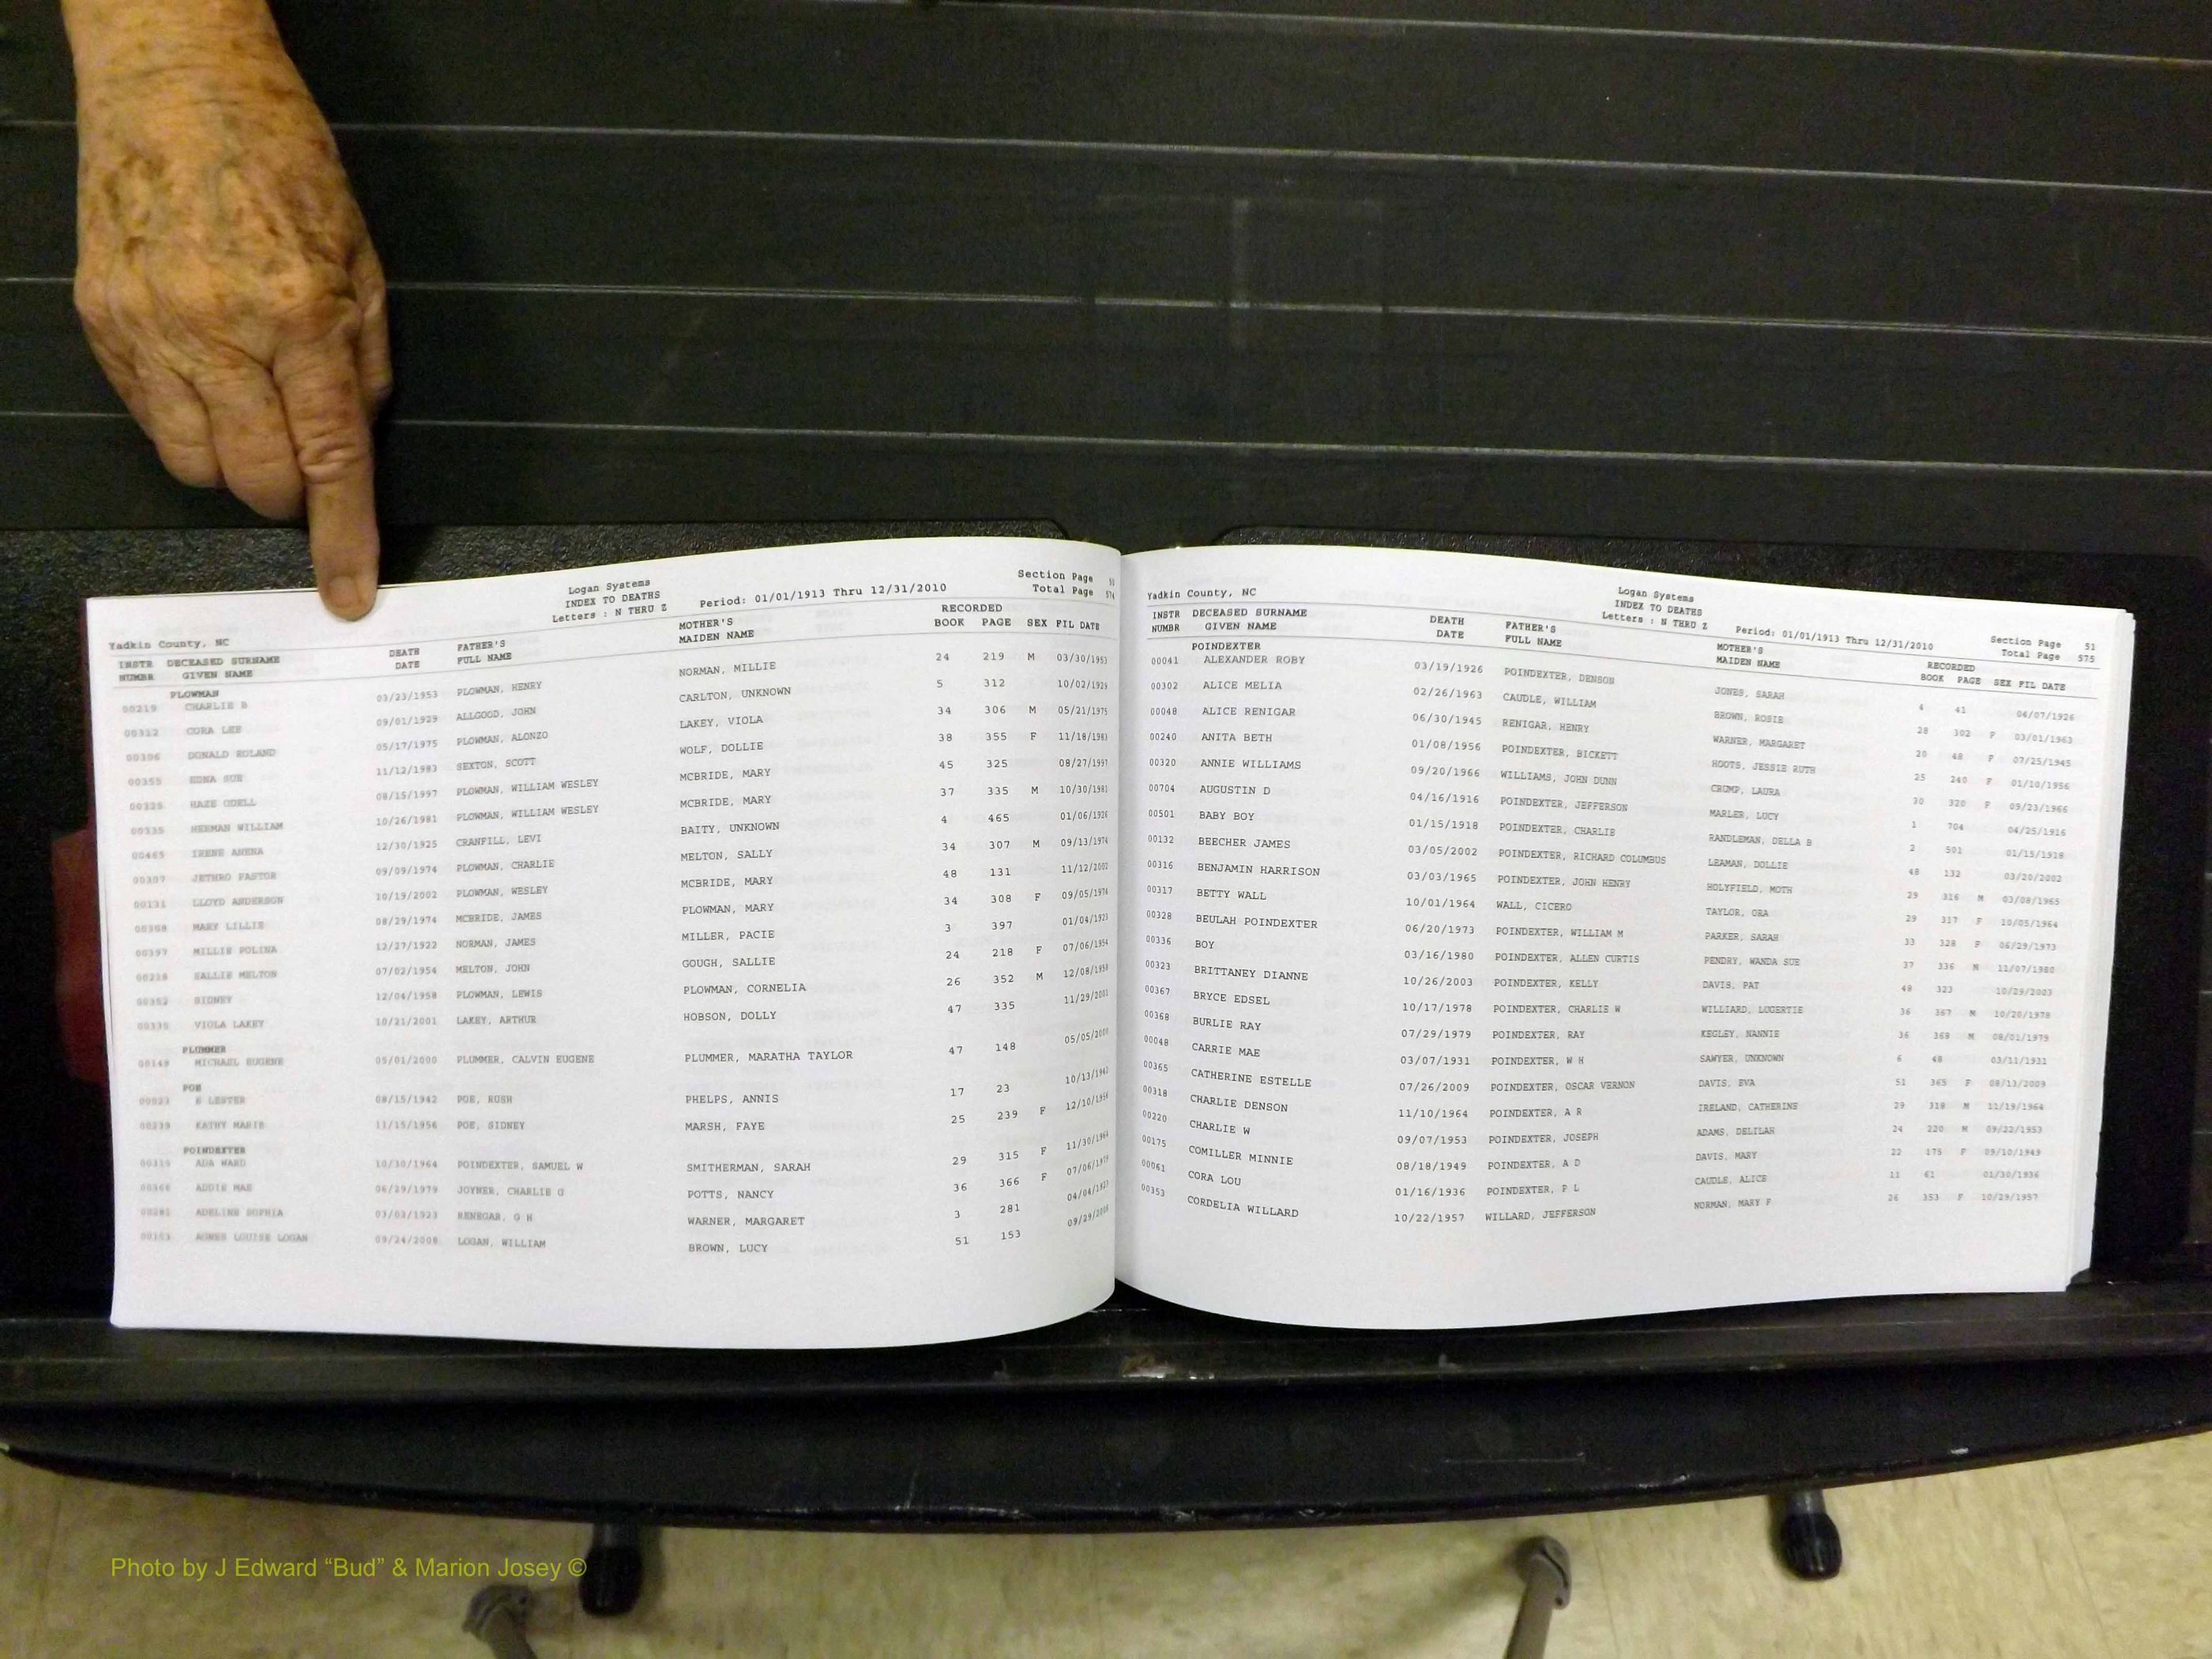 Yadkin County, NC
Logan Systems
INDEX TO DEATHS
Letters : N THRU Z
Period: 01/01/1913 Thru 12/31/2010
Section Page 50
Total Page 574
INSTR NUMBR DECEASED SURNAME GIVEN NAME DEATH DATE FATHER'S FULL NAME MOTHER'S MAIDEN NAME RECORDED BOOK PAGE SEX FIL DATE
PLOWMAN
00219 CHARLIE B 03/23/1953 PLOWMAN, HENRY NORMAN, MILLIE 24 219 M 03/30/1953
00312 CORA LEE 09/01/1929 ALLGOOD, JOHN CARLTON, UNKNOWN 5 312 10/02/1929
00306 DONALD ROLAND 05/17/1975 PLOWMAN, ALONZO LAKEY, VIOLA 34 306 M 05/21/1975
00355 EDNA SUE 11/12/1983 SEXTON, SCOTT WOLF, DOLLIE 38 355 F 11/18/1983
00325 HAZE ODELL 08/15/1997 PLOWMAN, WILLIAM WESLEY MCBRIDE, MARY 45 325 08/27/1997
00335 HERMAN WILLIAM 10/26/1981 PLOWMAN, WILLIAM WESLEY MCBRIDE, MARY 37 335 M 10/30/1981
00465 IRENE ANENA 12/30/1925 CRANFILL, LEVI BAITY, UNKNOWN 4 465 01/06/1926
00307 JETHRO PASTOR 09/09/1974 PLOWMAN, CHARLIE MELTON, SALLY 34 307 M 09/13/1974
00131 LLOYD ANDERSON 10/19/2002 PLOWMAN, WESLEY MCBRIDE, MARY 48 131 11/12/2002
00308 MARY LILLIE 08/29/1974 MCBRIDE, JAMES PLOWMAN, MARY 34 308 F 09/05/1974
00397 MILLIE POLINA 12/27/1922 NORMAN, JAMES MILLER, PACIE 3 397 01/04/1923
00218 SALLIE MELTON 07/02/1954 MELTON, JOHN GOUGH, SALLIE 24 218 F 07/06/1954
00352 SIDNEY 12/04/1958 PLOWMAN, LEWIS PLOWMAN, CORNELIA 26 352 M 12/08/1958
00335 VIOLA LAKEY 10/21/2001 LAKEY, ARTHUR HOBSON, DOLLY 47 335 11/29/2001
PLUMMER
00148 MICHAEL EUGENE 05/01/2000 PLUMMER, CALVIN EUGENE PLUMMER, MARATHA TAYLOR 47 148 05/05/2000
POE
00023 E LESTER 08/15/1942 POE, RUSH PHELPS, ANNIS 17 23 10/13/1942
00239 KATHY MARIE 11/15/1956 POE, SIDNEY MARSH, FAYE 25 239 F 12/10/1956
POINDEXTER
00315 ADA WARD 10/30/1964 POINDEXTER, SAMUEL W SMITHERMAN, SARAH 29 315 F 11/30/1964
00366 ADDIE MAE 06/29/1979 JOYNER, CHARLIE G POTTS, NANCY 36 366 F 07/06/1979
00281 ADELINE SOPHIA 03/03/1923 RENEGAR, G H WARNER, MARGARET 3 281 04/04/1923
00153 AGNES LOUISE LOGAN 09/24/2008 LOGAN, WILLIAM BROWN, LUCY 51 153 09/29/2008
Yadkin County, NC
Logan Systems
INDEX TO DEATHS
Letters : N THRU Z
Period: 01/01/1913 Thru 12/31/2010
Section Page 51
Total Page 575
INSTR NUMBR DECEASED SURNAME GIVEN NAME DEATH DATE FATHER'S FULL NAME MOTHER'S MAIDEN NAME RECORDED BOOK PAGE SEX FIL DATE
POINDEXTER
00041 ALEXANDER ROBY 03/19/1926 POINDEXTER, DENSON JONES, SARAH 4 41 04/07/1926
00302 ALICE MELIA 02/26/1963 CAUDLE, WILLIAM BROWN, ROSIE 28 302 F 03/01/1963
00048 ALICE RENIGAR 06/30/1945 RENIGAR, HENRY WARNER, MARGARET 20 48 F 07/25/1945
00240 ANITA BETH 01/08/1956 POINDEXTER, BICKETT HOOTS, JESSIE RUTH 25 240 F 01/10/1956
00320 ANNIE WILLIAMS 09/20/1966 WILLIAMS, JOHN DUNN CRUMP, LAURA 30 320 F 09/23/1966
00704 AUGUSTIN D 04/16/1916 POINDEXTER, JEFFERSON MARLER, LUCY 1 704 04/25/1916
00501 BABY BOY 01/15/1918 POINDEXTER, CHARLIE RANDLEMAN, DELLA B 2 501 01/15/1918
00132 BEECHER JAMES 03/05/2002 POINDEXTER, RICHARD COLUMBUS LEAMAN, DOLLIE 48 132 03/20/2002
00316 BENJAMIN HARRISON 03/03/1965 POINDEXTER, JOHN HENRY HOLYFIELD, MOTH 29 316 M 03/08/1965
00317 BETTY WALL 10/01/1964 WALL, CICERO TAYLOR, ORA 29 317 F 10/05/1964
00328 BEULAH POINDEXTER 06/20/1973 POINDEXTER, WILLIAM M PARKER, SARAH 33 328 F 06/29/1973
00336 BOY 03/16/1980 POINDEXTER, ALLEN CURTIS PENDRY, WANDA SUE 37 336 M 11/07/1980
00323 BRITTANEY DIANNE 10/26/2003 POINDEXTER, KELLY DAVIS, PAT 48 323 10/29/2003
00367 BRYCE EDSEL 10/17/1978 POINDEXTER, CHARLIE W WILLIARD, LUGERTIE 36 367 M 10/20/1978
00368 BURLIE RAY 07/29/1979 POINDEXTER, RAY KEGLEY, NANNIE 36 368 M 08/01/1979
00048 CARRIE MAE 03/07/1931 POINDEXTER, W H SAWYER, UNKNOWN 6 48 03/11/1931
00365 CATHERINE ESTELLE 07/26/2009 POINDEXTER, OSCAR VERNON DAVIS, EVA 51 365 F 08/13/2009
00318 CHARLIE DENSON 11/10/1964 POINDEXTER, A R IRELAND, CATHERINE 29 318 M 11/19/1964
00220 CHARLIE W 09/07/1953 POINDEXTER, JOSEPH ADAMS, DELILAH 24 220 M 09/22/1953
00175 COMILLER MINNIE 08/18/1949 POINDEXTER, A D DAVIS, MARY 22 175 F 09/10/1949
00061 CORA LOU 01/16/1936 POINDEXTER, P L CAUDLE, ALICE 11 61 01/30/1936
00353 CORDELIA WILLARD 10/22/1957 WILLARD, JEFFERSON NORMAN, MARY F 26 353 F 10/29/1957
Photo by J Edward “Bud” & Marion Josey ©